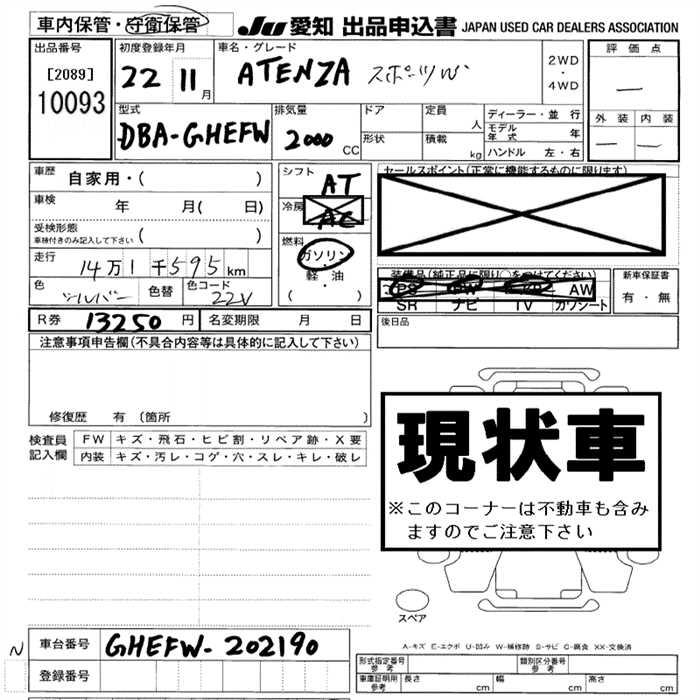 車内保管・守衛保管
JU 愛知 出品申込書 JAPAN USED CAR DEALERS ASSOCIATION
出品番号 初度登録年月 車名・グレード 2WD・4WD 評価点
[2089] 22 11月 ATENZA スポーツW —
10093
型式 排気量 ドア 定員 人 ディーラー・並行 外装 内装
DBA-GHEFW 2000 CC 形状 積載 kg モデル年式 年 — —
ハンドル 左・右
車歴 自家用・( ) シフト AT セールスポイント(正常に機能するものに限ります)
車検 年 月( 日) 冷房 AC
受検形態 ( )
車検付きのみ記入して下さい
燃料 ガソリン・軽・油 ( ・ )
走行 14万1千595km
色 シルバー 色替 色コード 22V
装備品(純正品に限り○をつけてください) 新車保証書
PS PW AW 有・無
SR ナビ TV カワシート
R券 13250円 名変期限 月 日 後日品
注意事項申告欄(不具合内容等は具体的に記入して下さい)
修復歴 有(箇所 )
現状車
※このコーナーは不動車も含みますのでご注意下さい
検査員記入欄 FW キズ・飛石・ヒビ割・リペア跡・X要
内装 キズ・汚レ・コゲ・穴・スレ・キレ・破レ
スペア
N 車台番号 GHEFW-202190
A-キズ E-エクボ U-凹み W-補修跡 S-サビ C-腐食 XX-交換済
登録番号
型式指定番号 参考 類別区分番号 参考
車庫証明用 参考 長さ cm 幅 cm 高さ cm